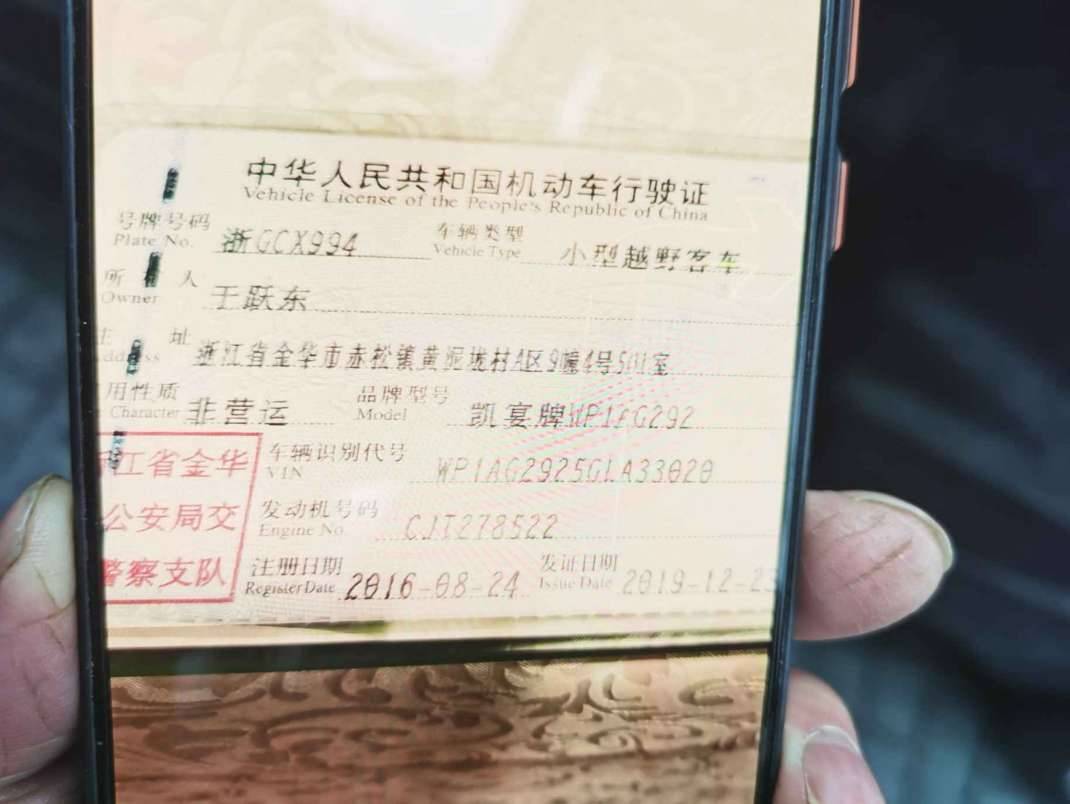 中华人民共和国机动车行驶证
Vehicle License of the People's Republic of China
号牌号码 浙GCX994 车辆类型 小型越野客车
Plate No. Vehicle Type
所 人 于跃东
Owner
址 浙江省金华市赤松镇黄泥垅村A区9幢4号501室
用性质 非营运 品牌型号 凯宴牌WP1AG292
Character Model
江省金华 车辆识别代号 WP1AG2925GLA33020
VIN
公安局交 发动机号码 CJT278522
Engine No.
警察支队 注册日期 2016-08-24 发证日期 2019-12-23
Register Date Issue Date